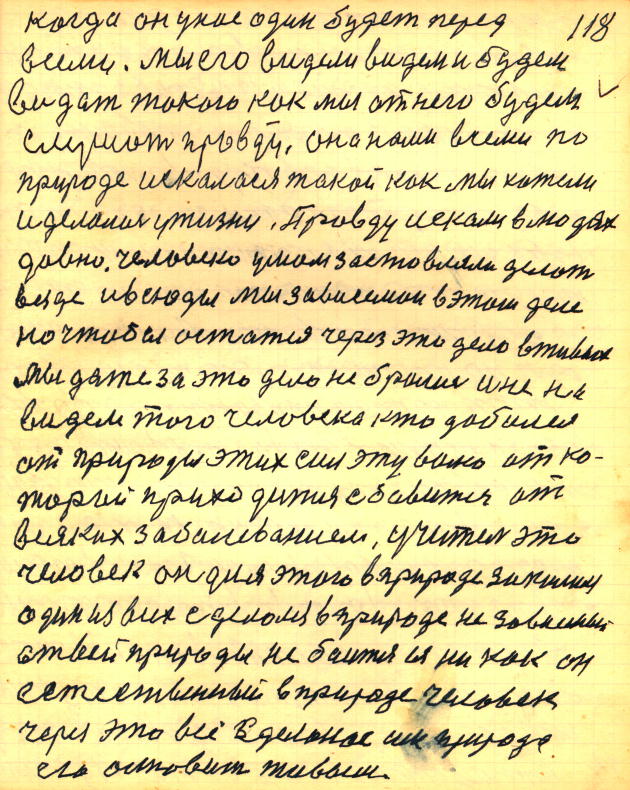 когда он у нас один будет перед 118
всеми. Мы его видели видем и будем
видат такого как мы от него будем
слушат правду, она нами всеми по
природе искалася такой как мы хотели
и делалася у жизни. Правду искали в людях
давно, человека умом заставляли делат
везде и всюды мы зависемои в этом деле
но чтобы остатся через это дело в живых
мы даже за это дело не бралися и не на
видем того человека кто добился
от природы этих сил эту волю от ко-
торый приходится сбавится от
всяких заболеванием, учител это
человек он для этого в природе закалился
один из всех сделался в природе не зависимый
от всей природы не боится ей ни как он
естественный в природе человек
через это всё сделаное им природе
его остновит живым.